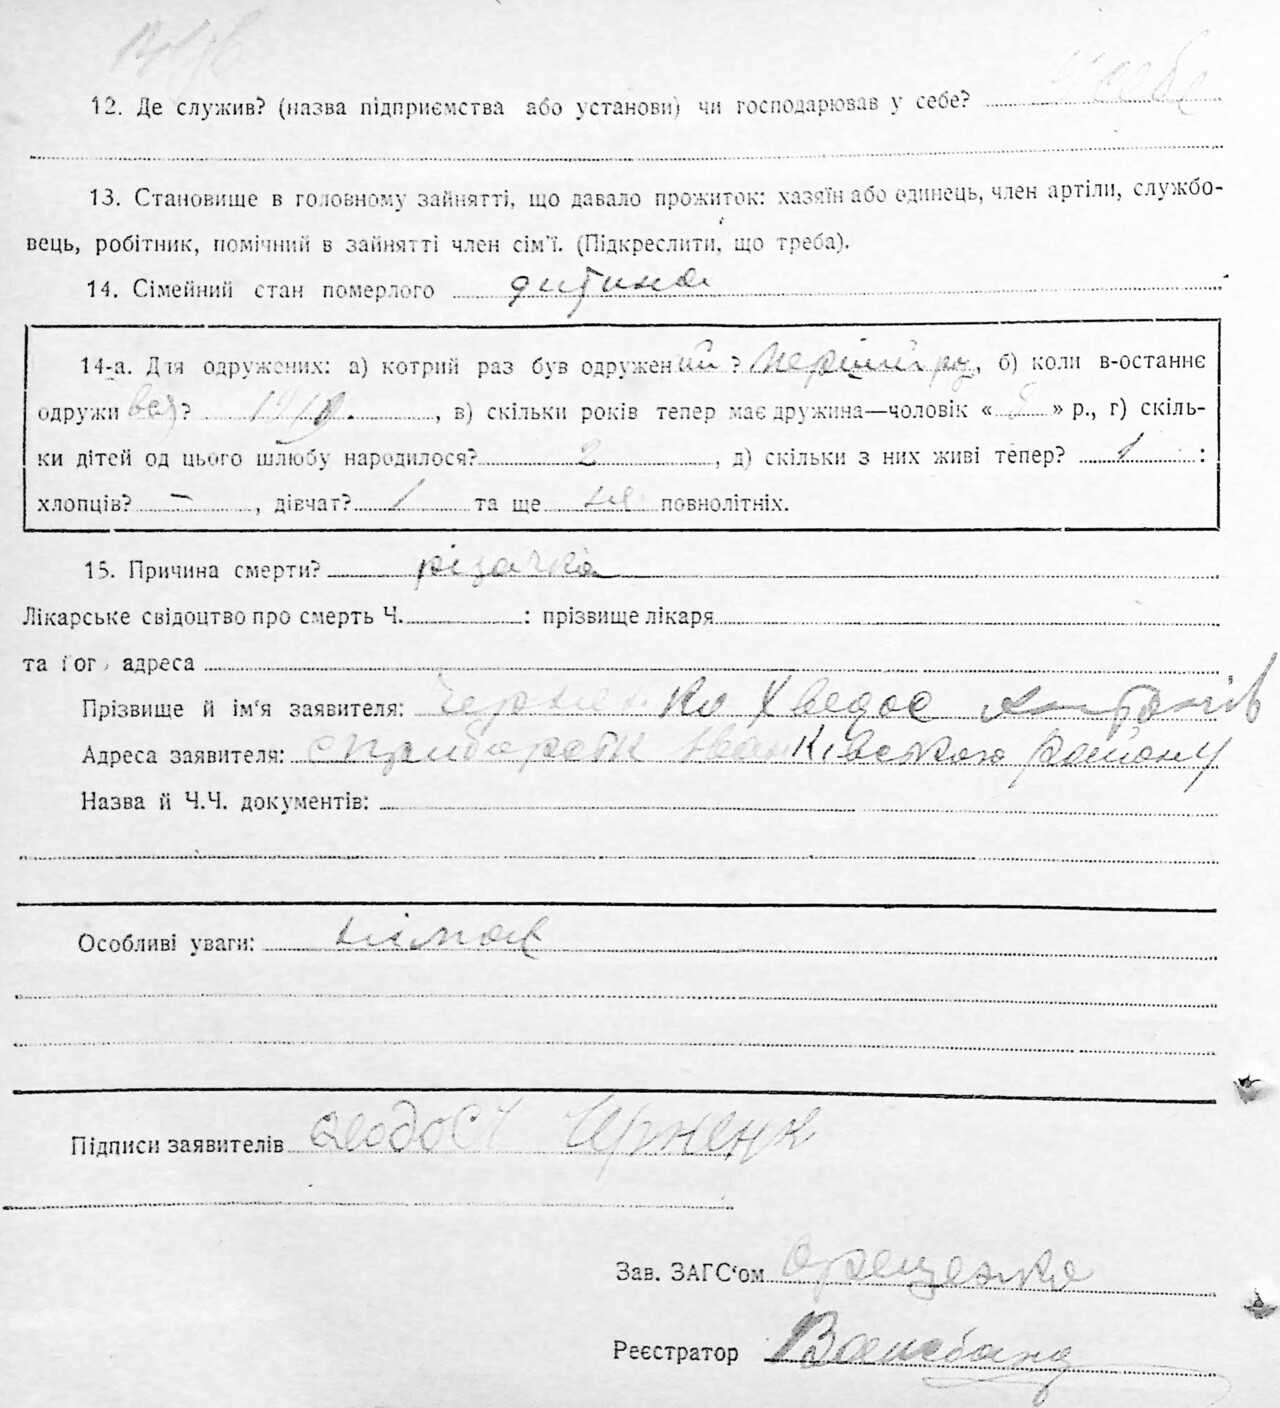 12. Де служив? (назва підприємства або установи) чи господарював у себе? у себе
13. Становище в головному зайнятті, що давало прожиток: хазяїн або одинець, член артіли, службо-
вець, робітник, помічний в зайнятті член сім'ї. (Підкреслити, що треба).
14. Сімейний стан померлого дитина
14-а. Для одружених: а) котрий раз був одружений? перший раз, б) коли в-останнє
одружився? , в) скільки років тепер має дружина—чоловік « » р., г) скіль-
ки дітей од цього шлюбу народилося? 2, д) скільки з них живі тепер? 1:
хлопців? –, дівчат? 1 та ще не повнолітніх.
15. Причина смерти? різачка
Лікарське свідоцтво про смерть Ч. : прізвище лікаря
та його адреса
Прізвище й ім'я заявителя: Черненко Хведос Антонів
Адреса заявителя: Іванківського району
Назва й Ч.Ч. документів:
Особливі уваги: немає
Підписи заявителів Черненк
Зав. ЗАГС'ом
Реєстратор